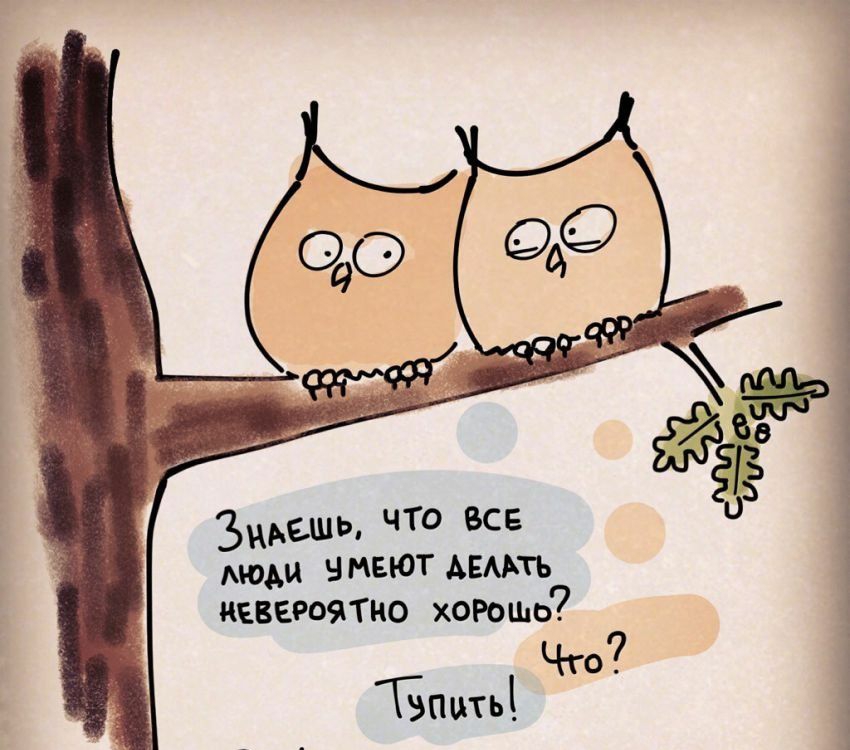 Знаешь, что все
люди умеют делать
невероятно хорошо?
Что?
Тупить!